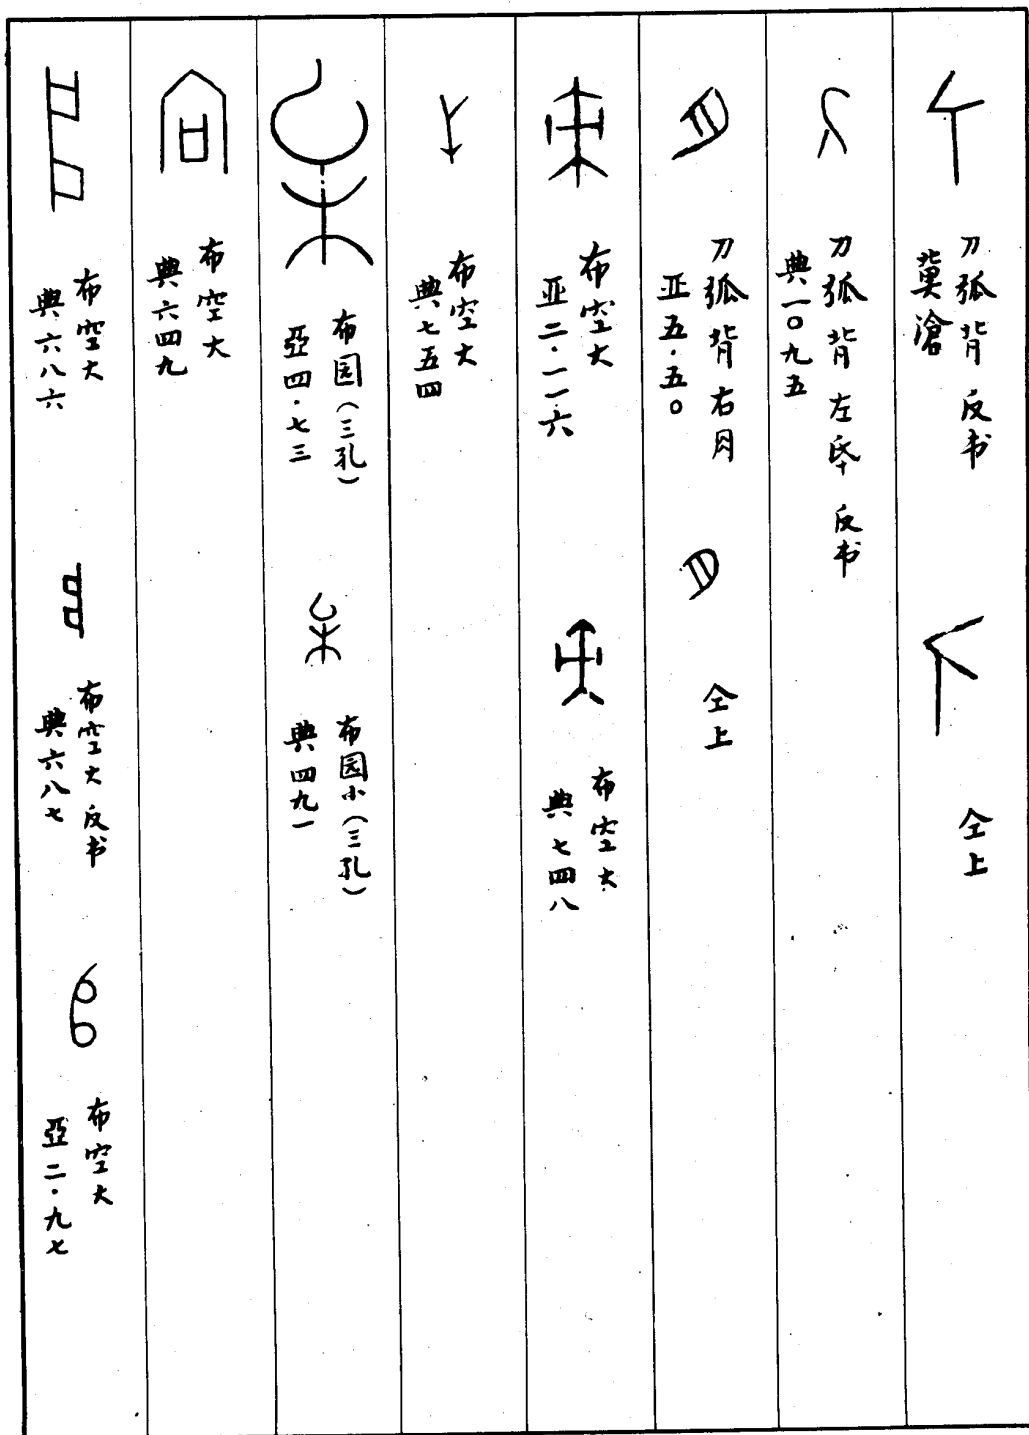 刀弧背 反书
冀滄
仝上
刀弧背 左 反书
典一〇九五
刀弧背 右
亚五·五〇
仝上
布空大
亚二·一一六
布空大
典七四八
布空大
典七五四
布园(三孔)
亞四·七三
布园小(三孔)
典四九一
布空大
典六四九
布空大
典六八六
布空大 反书
典六八七
布空大
亞二·九七